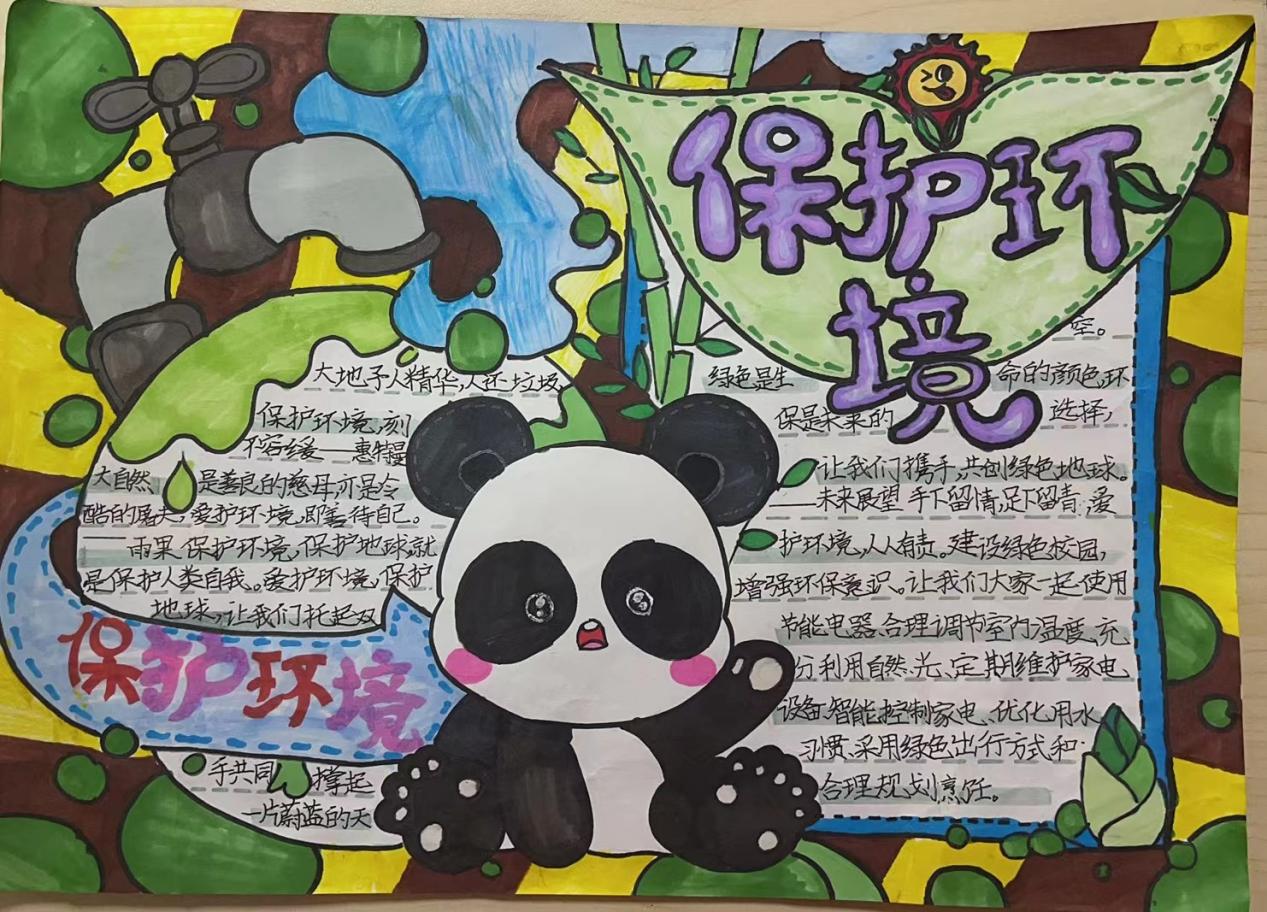 保护环
境
大地予人精华,人还垃圾
保护环境,刻
不容缓——惠特曼
大自然是善良的慈母,亦是冷
酷的屠夫,爱护环境,即善待自己。
——雨果 保护环境,保护地球,就
是保护人类自我。爱护环境,保护
地球,让我们托起双
保护环境
手共同撑起
一片蔚蓝的天
空。
绿色是生命的颜色,环
保是未来的选择,
让我们携手,共创绿色地球。
——未来展望 手下留情,足下留青,爱
护环境,人人有责。建设绿色校园,
增强环保意识。让我们大家一起使用
节能电器、合理调节室内温度、充
分利用自然光、定期维护家电、
设备、智能控制家电、优化用水
习惯、采用绿色出行方式和
合理规划烹饪。